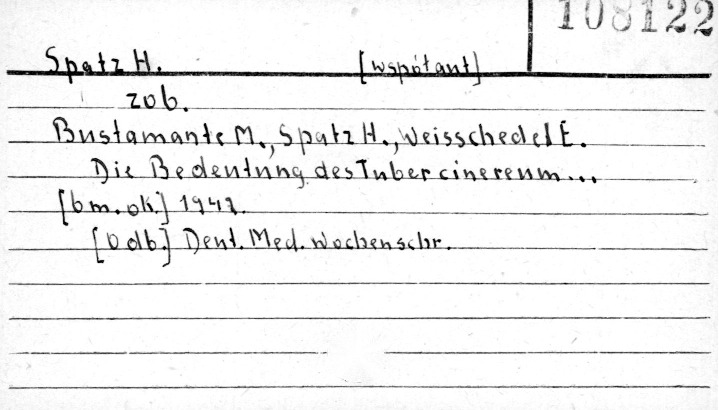 108122
Spatz H. [współaut]
zob.
Bustamante M., Spatz H., Weisschedel E.
Die Bedeutung des Tuber cinereum...
[b m. ok.] 1942.
[Odb.] Deut. Med. Wochenschr.